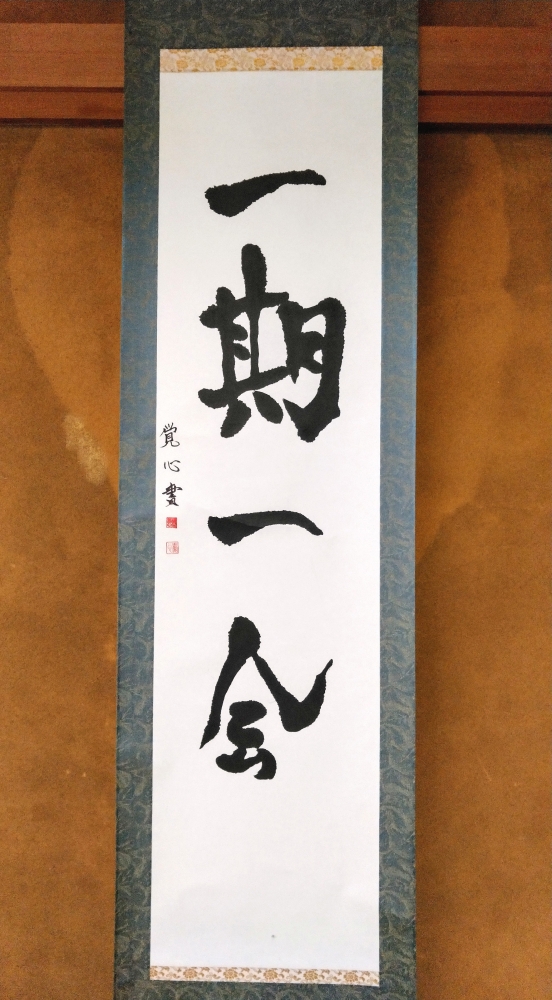 一期一会
覚心書